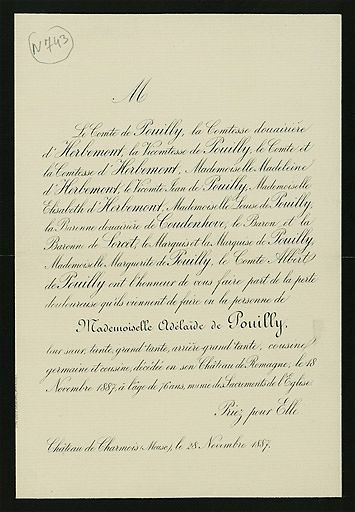 N 743
M
Le Comte de Pouilly, la Comtesse douairière
d'Herbemont, la Vicomtesse de Pouilly, le Comte et
la Comtesse d'Herbemont, Mademoiselle Madeleine
d'Herbemont, le Vicomte Jean de Pouilly, Mademoiselle
Elisabeth d'Herbemont, Mademoiselle Louise de Pouilly,
la Baronne douairière de Coudenhove, le Baron et la
Baronne de Loret, le Marquis et la Marquise de Pouilly,
Mademoiselle Marguerite de Pouilly, le Comte Albert
de Pouilly ont l'honneur de vous faire part de la perte
douloureuse qu'ils viennent de faire en la personne de
Mademoiselle Adélaïde de Pouilly,
leur sœur, tante, grand'tante, arrière-grand'tante, cousine
germaine et cousine, décédée en son Château de Romagne, le 18
Novembre 1887, à l'âge de 76 ans, munie des Sacrements de l'Eglise.
Priez pour Elle
Château de Charmois (Meuse), le 28 Novembre 1887.